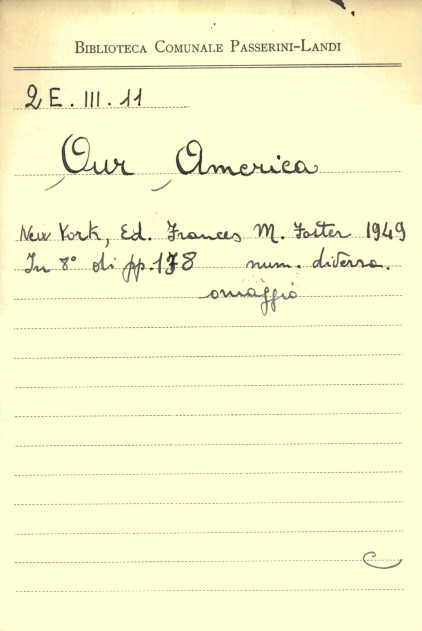 BIBLIOTECA COMUNALE PASSERINI-LANDI
2 E. III. 11
Our America
New York, Ed. Frances M. Foster 1949
In 8° di pp. 178 num. diversa.
omaggio
C